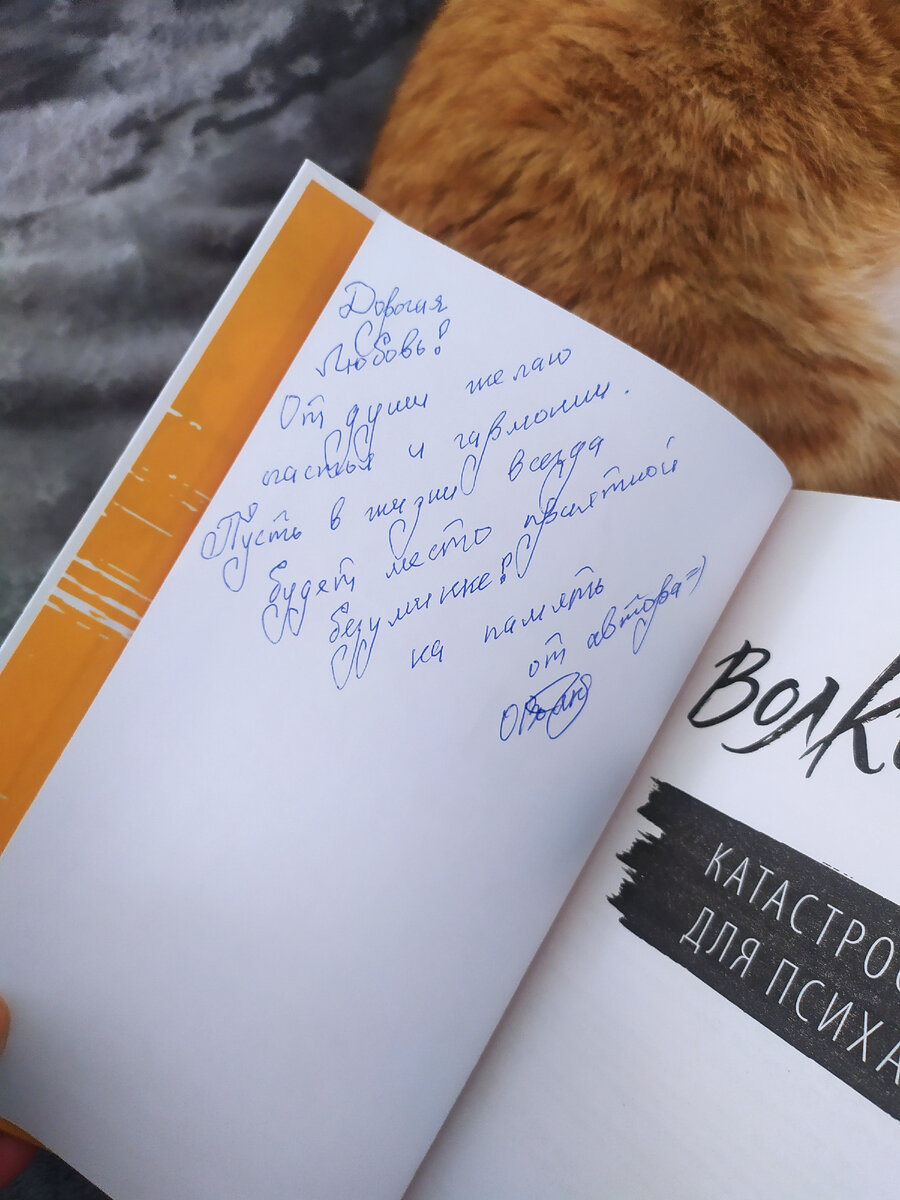 Дорогая
Любовь!
От души желаю
счастья и гармонии.
Пусть в жизни всегда
будет место приятной
безуминке!
на память
от автора =)
ВОЛК
КАТАСТРОФ
ДЛЯ ПСИХА